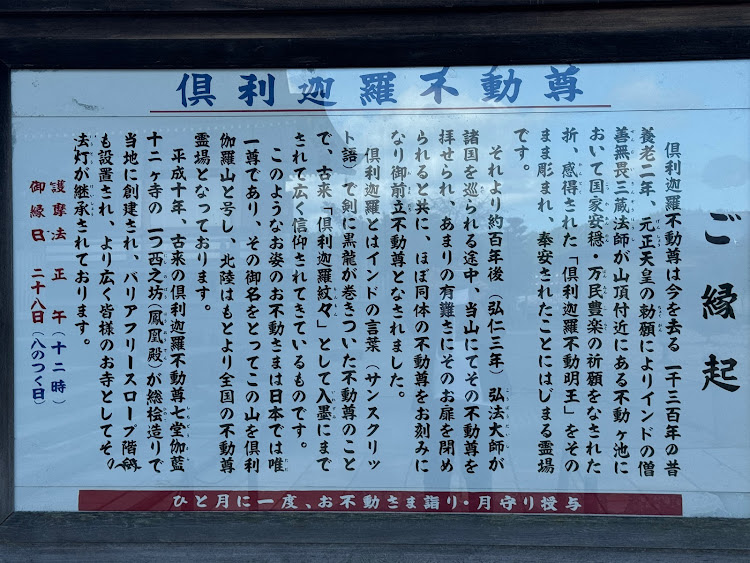 倶利迦羅不動尊
ご縁起
倶利迦羅不動尊は今を去る一千三百年の昔
養老二年、元正天皇の勅願によりインドの僧
善無畏三蔵法師が山頂付近にある不動ヶ池に
おいて国家安穏・万民豊楽の祈願をなされた
折、感得された「倶利迦羅不動明王」をその
まま彫まれ、奉安されたことにはじまる霊場
です。
それより約百年後（弘仁三年）弘法大師が
諸国を巡られる途中、当山にてその不動尊を
拝せられ、あまりの有難さにそのお扉を閉め
られると共に、ほぼ同体の不動尊をお刻みに
なり御前立不動尊となされました。
倶利迦羅とはインドの言葉（サンスクリッ
ト語）で剣に黒龍が巻きついた不動尊のこと
で、古来「倶利迦羅紋々」として入墨にまで
されて広く信仰されてきているものです。
このようなお姿のお不動さまは日本では唯
一尊であり、その御名をとってこの山を倶利
伽羅山と号し、北陸はもとより全国の不動尊
霊場となっております。
平成十年、古来の倶利迦羅不動尊七堂伽藍
十二ヶ寺の一つ西之坊（鳳凰殿）が総桧造りで
当地に創建され、バリアフリースロープ階段
も設置され、より広く皆様のお寺としてその
法灯が継承されております。
護摩法　正午（十二時）
御縁日　二十八日（八のつく日）
ひと月に一度、お不動さま詣り・月守り授与